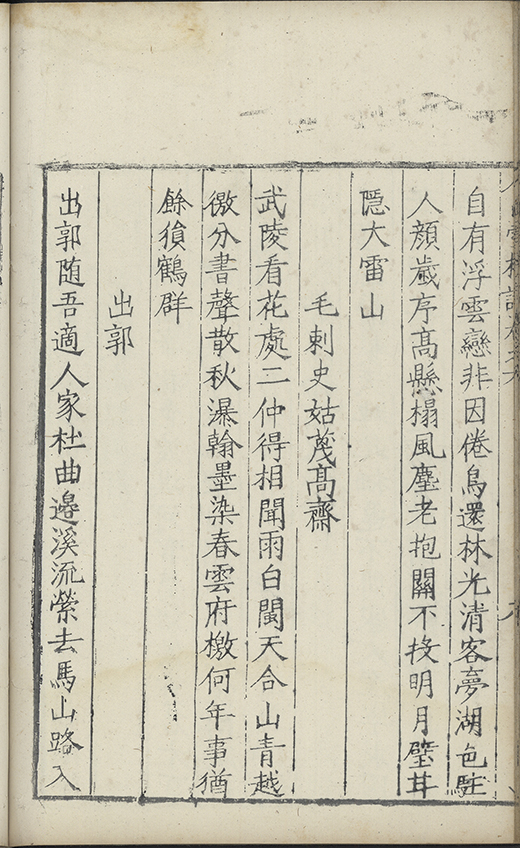 自有浮雲戀非因倦鳥還林光清客夢湖色駐
人顏歲序高懸榻風塵老抱關不投明月璧甘
隱大雷山
毛刺史姑蔑高齋
武陵看花處二仲得相聞雨白閩天合山青越
徼分書聲散秋瀑翰墨染春雲府檄何年事猶
餘猿鶴群
出郭
出郭随吾適人家杜曲邉溪流縈去馬山路入